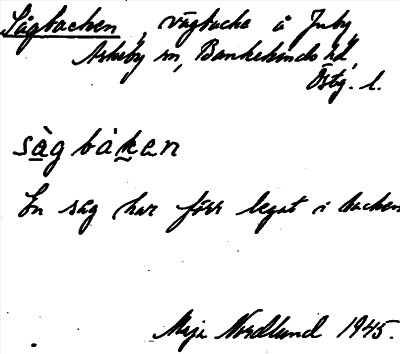 Sågbacken, vägbacke å Juby,
Askeby sn, Bankekinds hd,
Östg. l.
sàgbàkan
En såg har förr legat i backen
Maja Nordlund 1945.